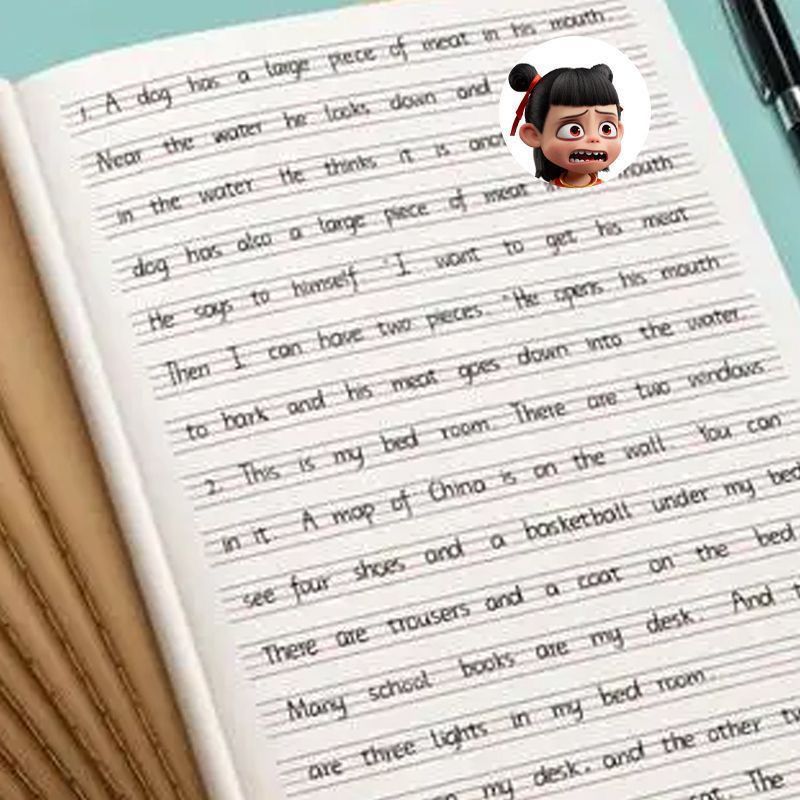 1. A dog has a large piece of meat in his mouth.
Near the water he looks down and
in the water. He thinks it is
dog has also a large piece of meat mouth
He says to himself "I want to get his meat
Then I can have two pieces. "He opens his mouth
to bark and his meat goes down into the water.
2. This is my bed room. There are two windows
in it. A map of China is on the wall. You can
see four shoes and a basketball under my bed
There are trousers and a coat on the bed
Many school books are my desk. And
are three lights in my bed room.
my desk. and the other
The